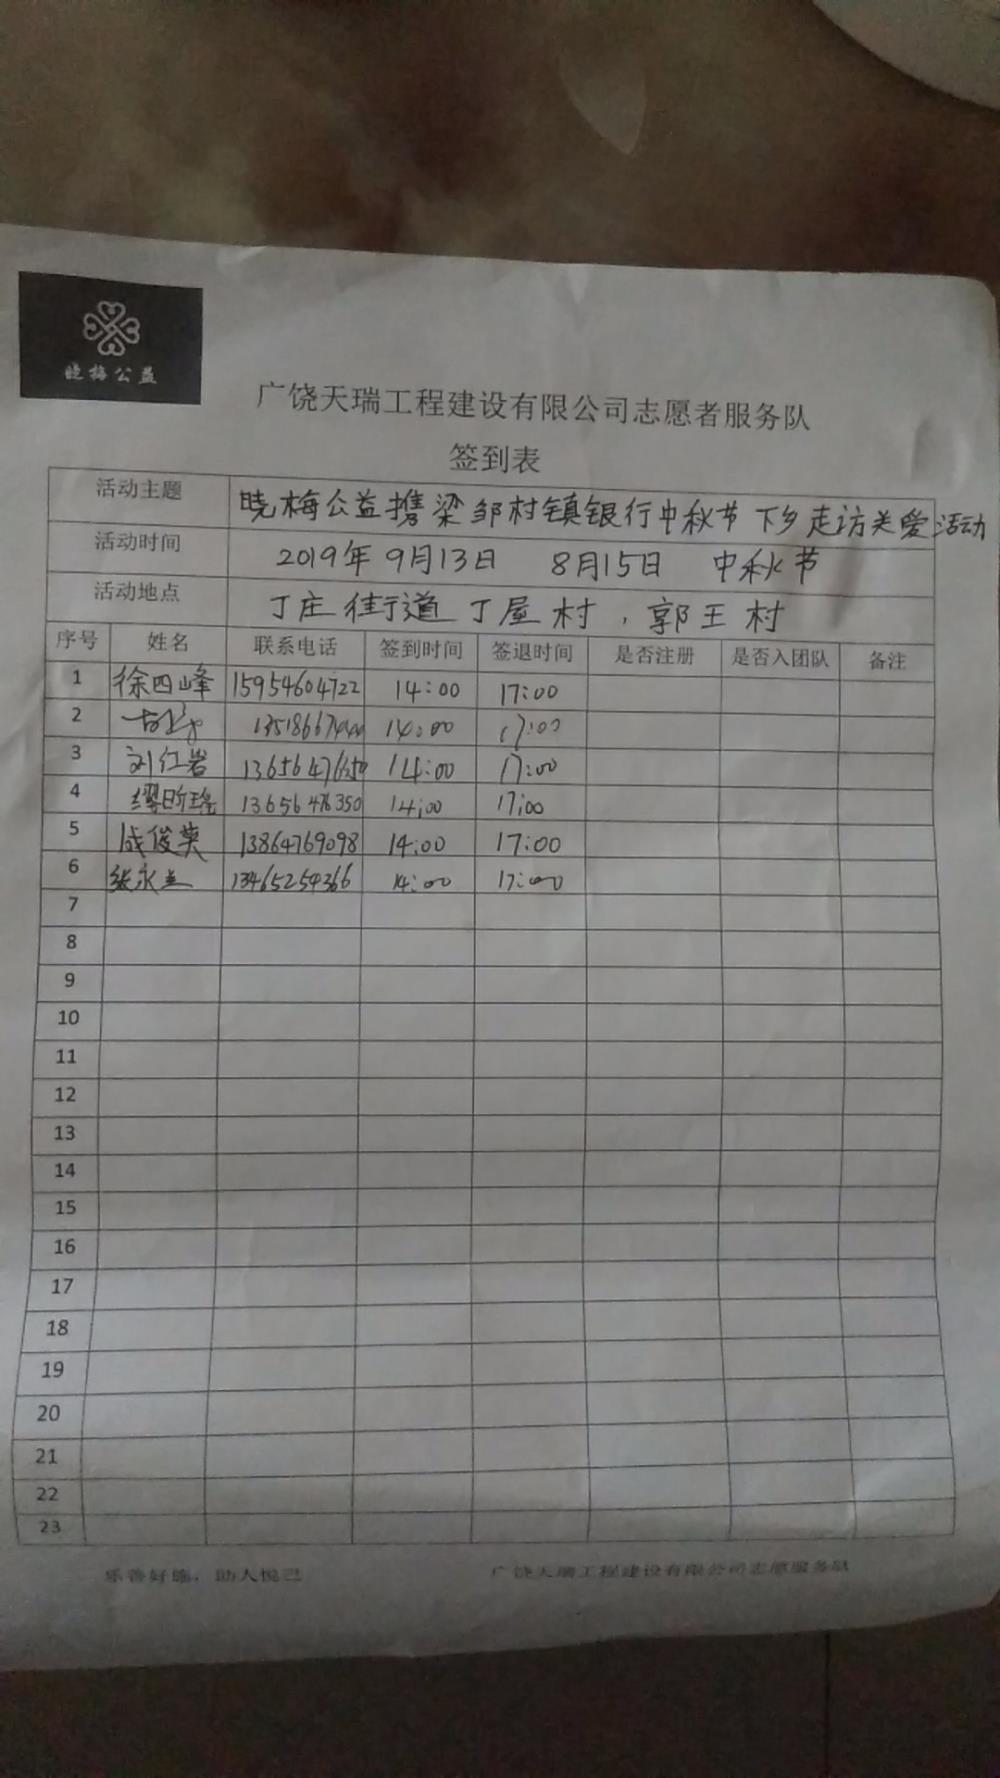 晓梅公益
广饶天瑞工程建设有限公司志愿者服务队
签到表
活动主题 晓梅公益携梁邹村镇银行中秋节下乡走访关爱活动
活动时间 2019年9月13日 8月15日 中秋节
活动地点 丁庄街道丁屋村，郭王村
序号 姓名 联系电话 签到时间 签退时间 是否注册 是否入团队 备注
1 徐四峰 15954604722 14:00 17:00
2 14:00 17:00
3 刘红岩 14:00 17:00
4 13656476350 14:00 17:00
5 成俊英 13864769098 14:00 17:00
6 张永兰 13465254366 14:00 17:00
7
8
9
10
11
12
13
14
15
16
17
18
19
20
21
22
23
乐善好施，助人悦己 广饶天瑞工程建设有限公司志愿服务队